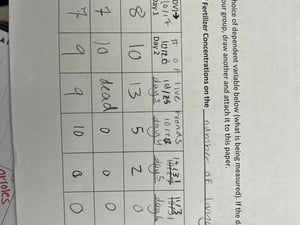 hoice of dependent variable below (what is being measured). If the d
our group, draw another and attach it to this paper.
Fertilizer Concentrations on the number of living
DV→ # of live fronds
10/17 10/20 10/25 10/27 10/31 11/3
Day 1 Day 2 days day4 day5 day6
8 10 13 5 2 0
7 10 dead 0 0 0
7 9 9 10 0 0